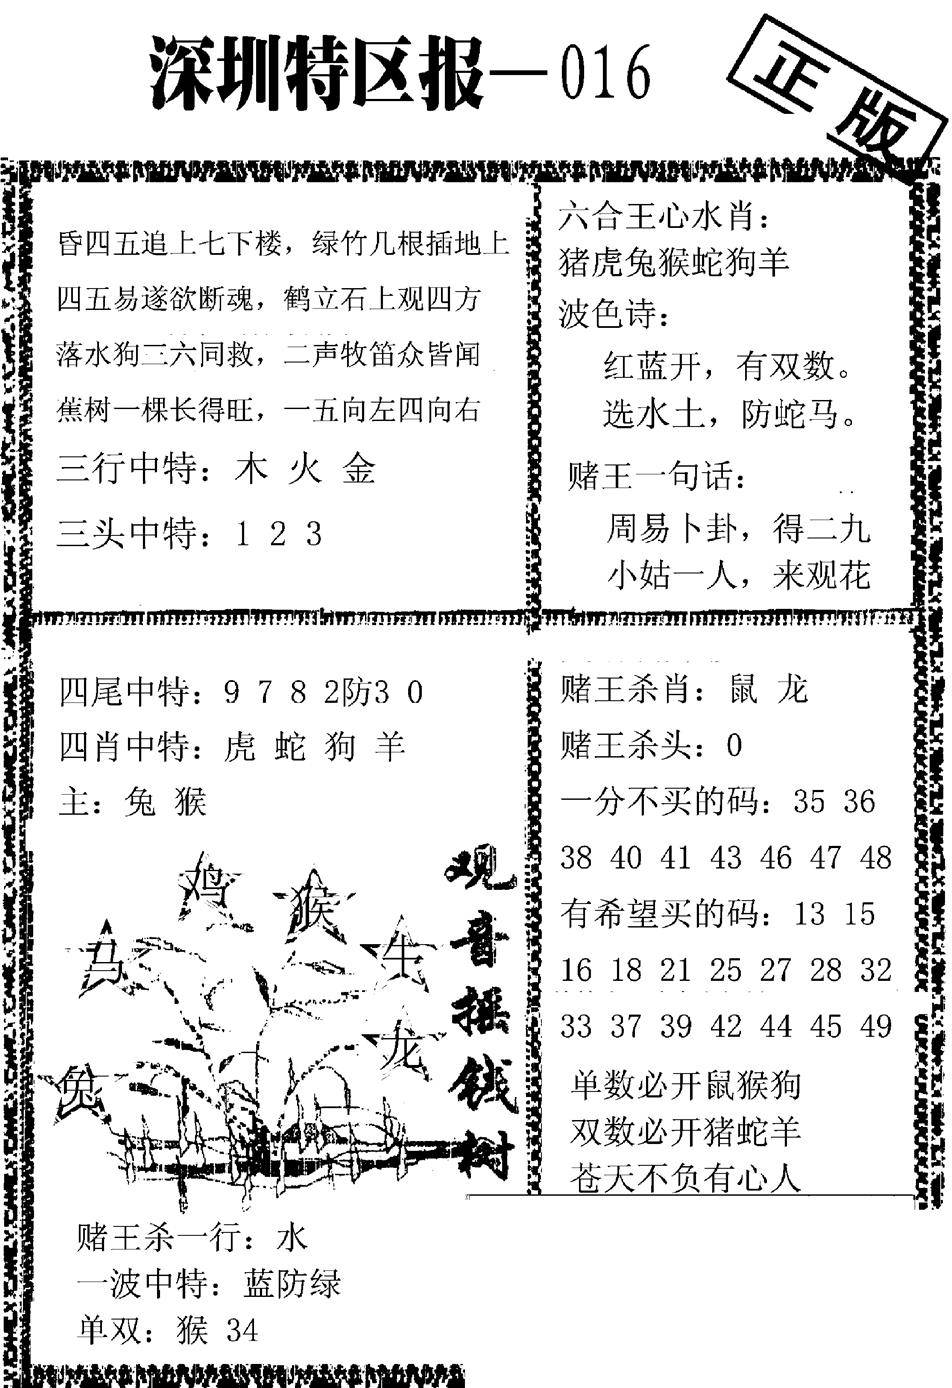 深圳特区报—016
正版
昏四五追上七下楼，绿竹几根插地上
四五易遂欲断魂，鹤立石上观四方
落水狗三六同救，二声牧笛众皆闻
蕉树一棵长得旺，一五向左四向右
三行中特：木 火 金
三头中特：1 2 3
六合王心水肖：
猪虎兔猴蛇狗羊
波色诗：
红蓝开，有双数。
选水土，防蛇马。
赌王一句话：
周易卜卦，得二九
小姑一人，来观花
四尾中特：9 7 8 2防3 0
四肖中特：虎 蛇 狗 羊
主：兔 猴
鸡
猴
马
牛
龙
兔
观音摇钱树
赌王杀一行：水
一波中特：蓝防绿
单双：猴 34
赌王杀肖：鼠 龙
赌王杀头：0
一分不买的码：35 36
38 40 41 43 46 47 48
有希望买的码：13 15
16 18 21 25 27 28 32
33 37 39 42 44 45 49
单数必开鼠猴狗
双数必开猪蛇羊
苍天不负有心人